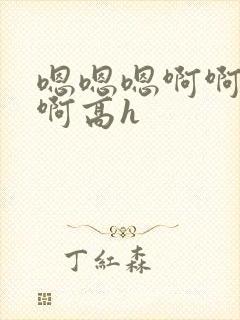 嗯嗯嗯啊啊
啊高h
丁紅森